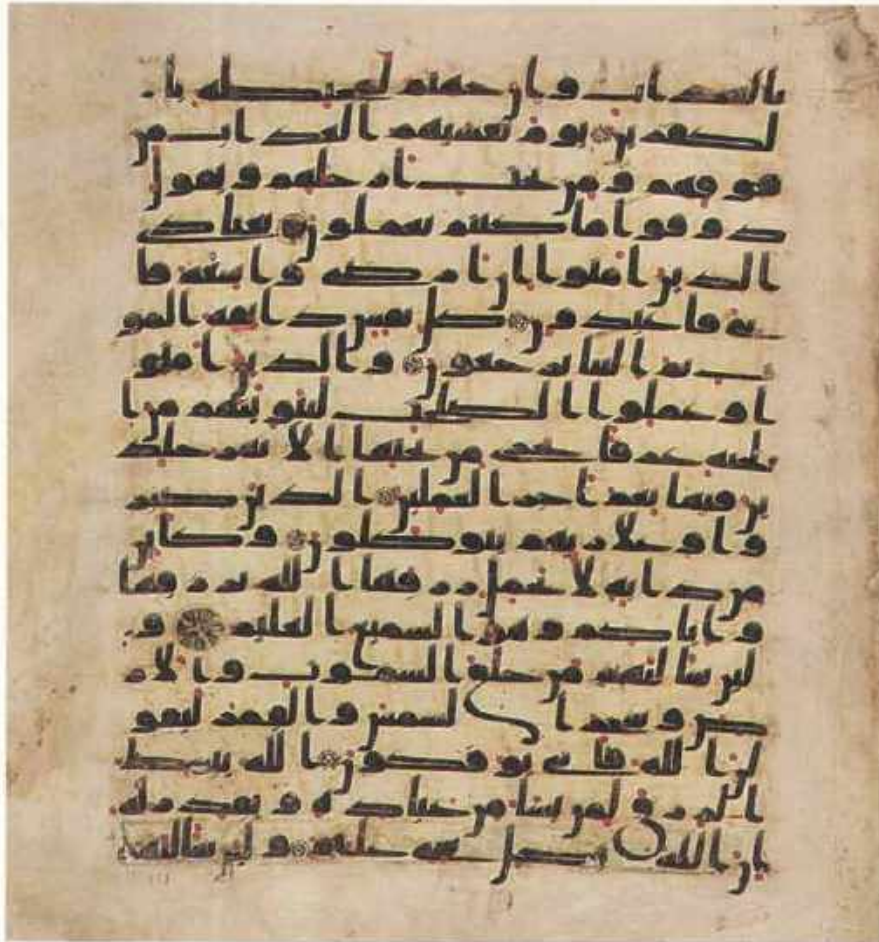 بالعذاب وان جهنم لمحيطة با
لكفرين يوم يغشيهم العذاب من
فوقهم ومن تحت ارجلهم ويقول
ذوقوا ما كنتم تعملون يعبادي
الذين امنوا ان ارضي وسعة فا
يي فاعبدون كل نفس ذايقة المو
ت ثم الينا ترجعون والذين امنو
ا وعملوا الصلحت لنبوينهم من ا
لجنة غرفا تجري من تحتها الانهر خلد
ين فيها نعم اجر العملين الذين صبر
وا وعلى ربهم يتوكلون وكاين
من دابة لا تحمل رزقها الله يرزقها
واياكم وهو السميع العليم و
لين سالتهم من خلق السموت والار
ض وسخر الشمس والقمر ليقو
لن الله فانى يوفكون الله يبسط
الرزق لمن يشا من عباده ويقدر له
ان الله بكل شي عليم ولين سالتهم